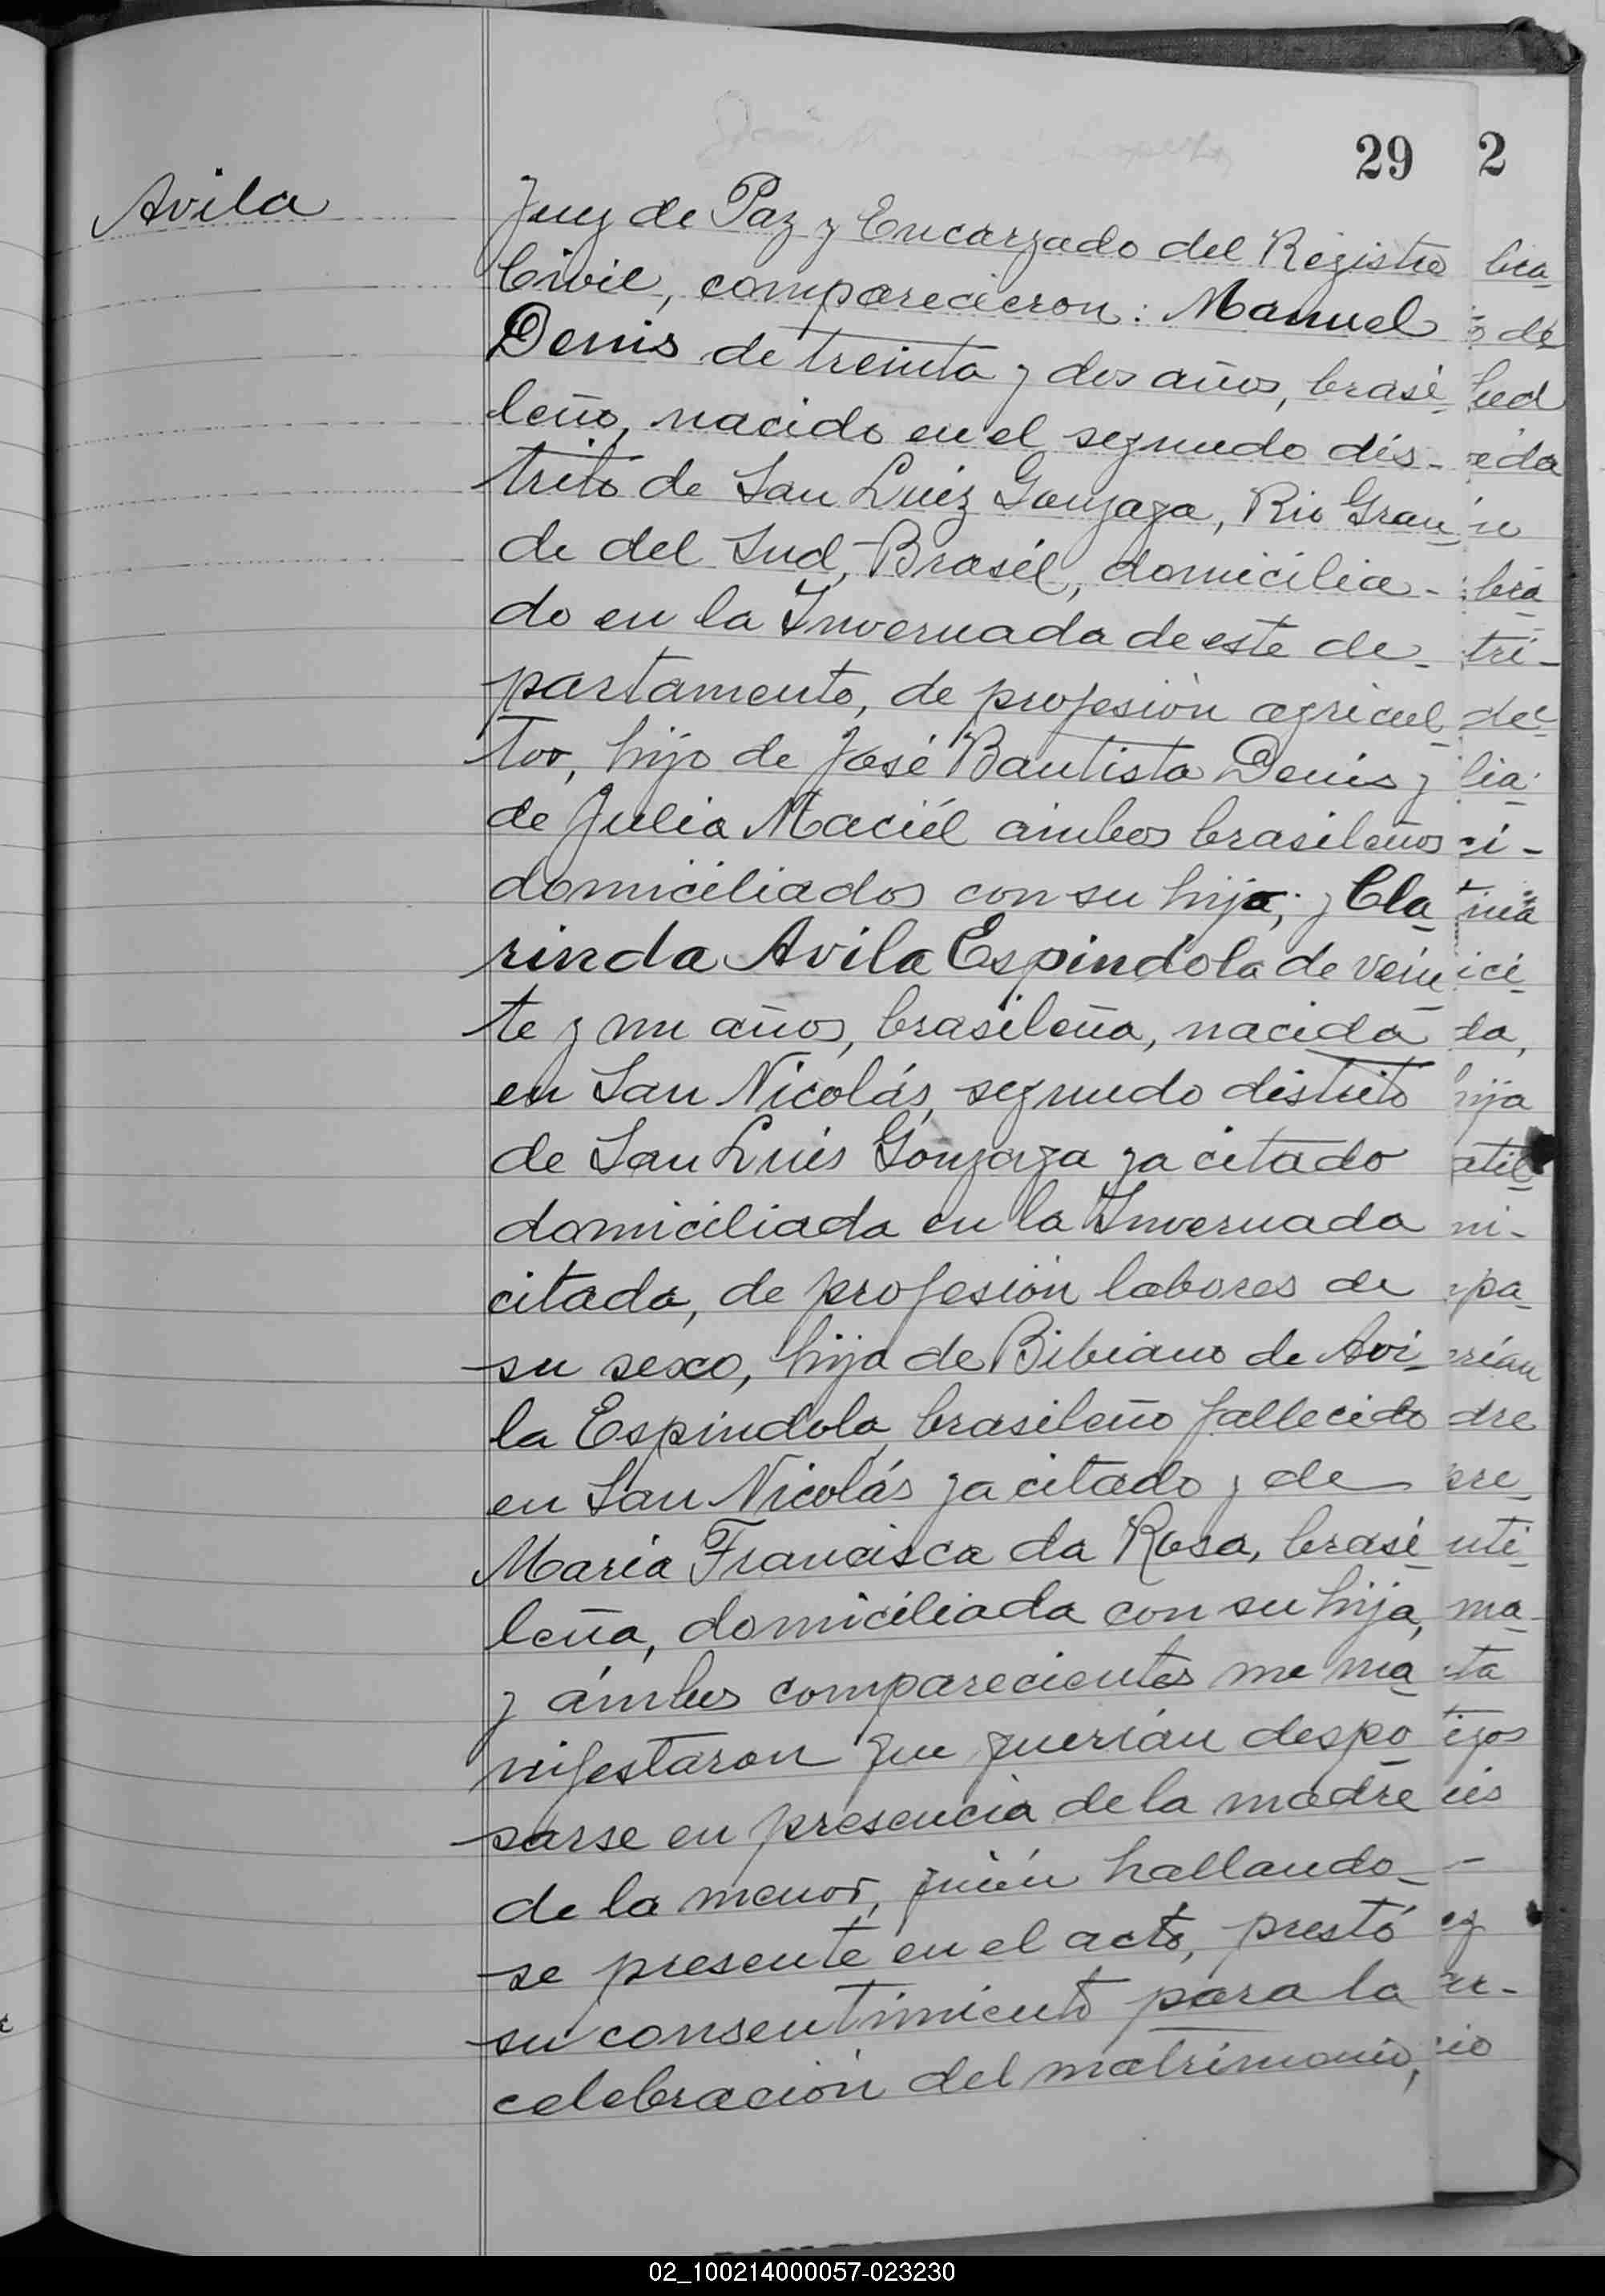 29 2
Avila
Juez de Paz y Encargado del Registro
Civil, comparecieron: Manuel
Denis de treinta y dos años, brasi-
leño, nacido en el segundo dis-
trito de San Luiz Gonzaga, Rio Gran-
de del Sud, Brasil, domicilia-
do en la Invernada de este de-
partamento, de profesión agricul-
tor, hijo de José Bautista Denis y
de Julia Maciél ambos brasileños
domiciliados con su hijo; y Cla-
rinda Avila Espindola de vein-
te y un años, brasileña, nacida
en San Nicolás, segundo distrito
de San Luis Gonzaga ya citado
domiciliada en la Invernada
citada, de profesión labores de
su sexo, hija de Bibiano de Avi-
la Espindola, brasileño fallecido
en San Nicolás ya citado y de
Maria Francisca da Rosa, brasi-
leña, domiciliada con su hija,
y ámbos comparecientes me ma-
nifestaron que querían despo-
sarse en presencia de la madre
de la menor, quién hallando-
se presente en el acto, prestó
su consentimiento para la
celebración del matrimonio,
02_100214000057-023230